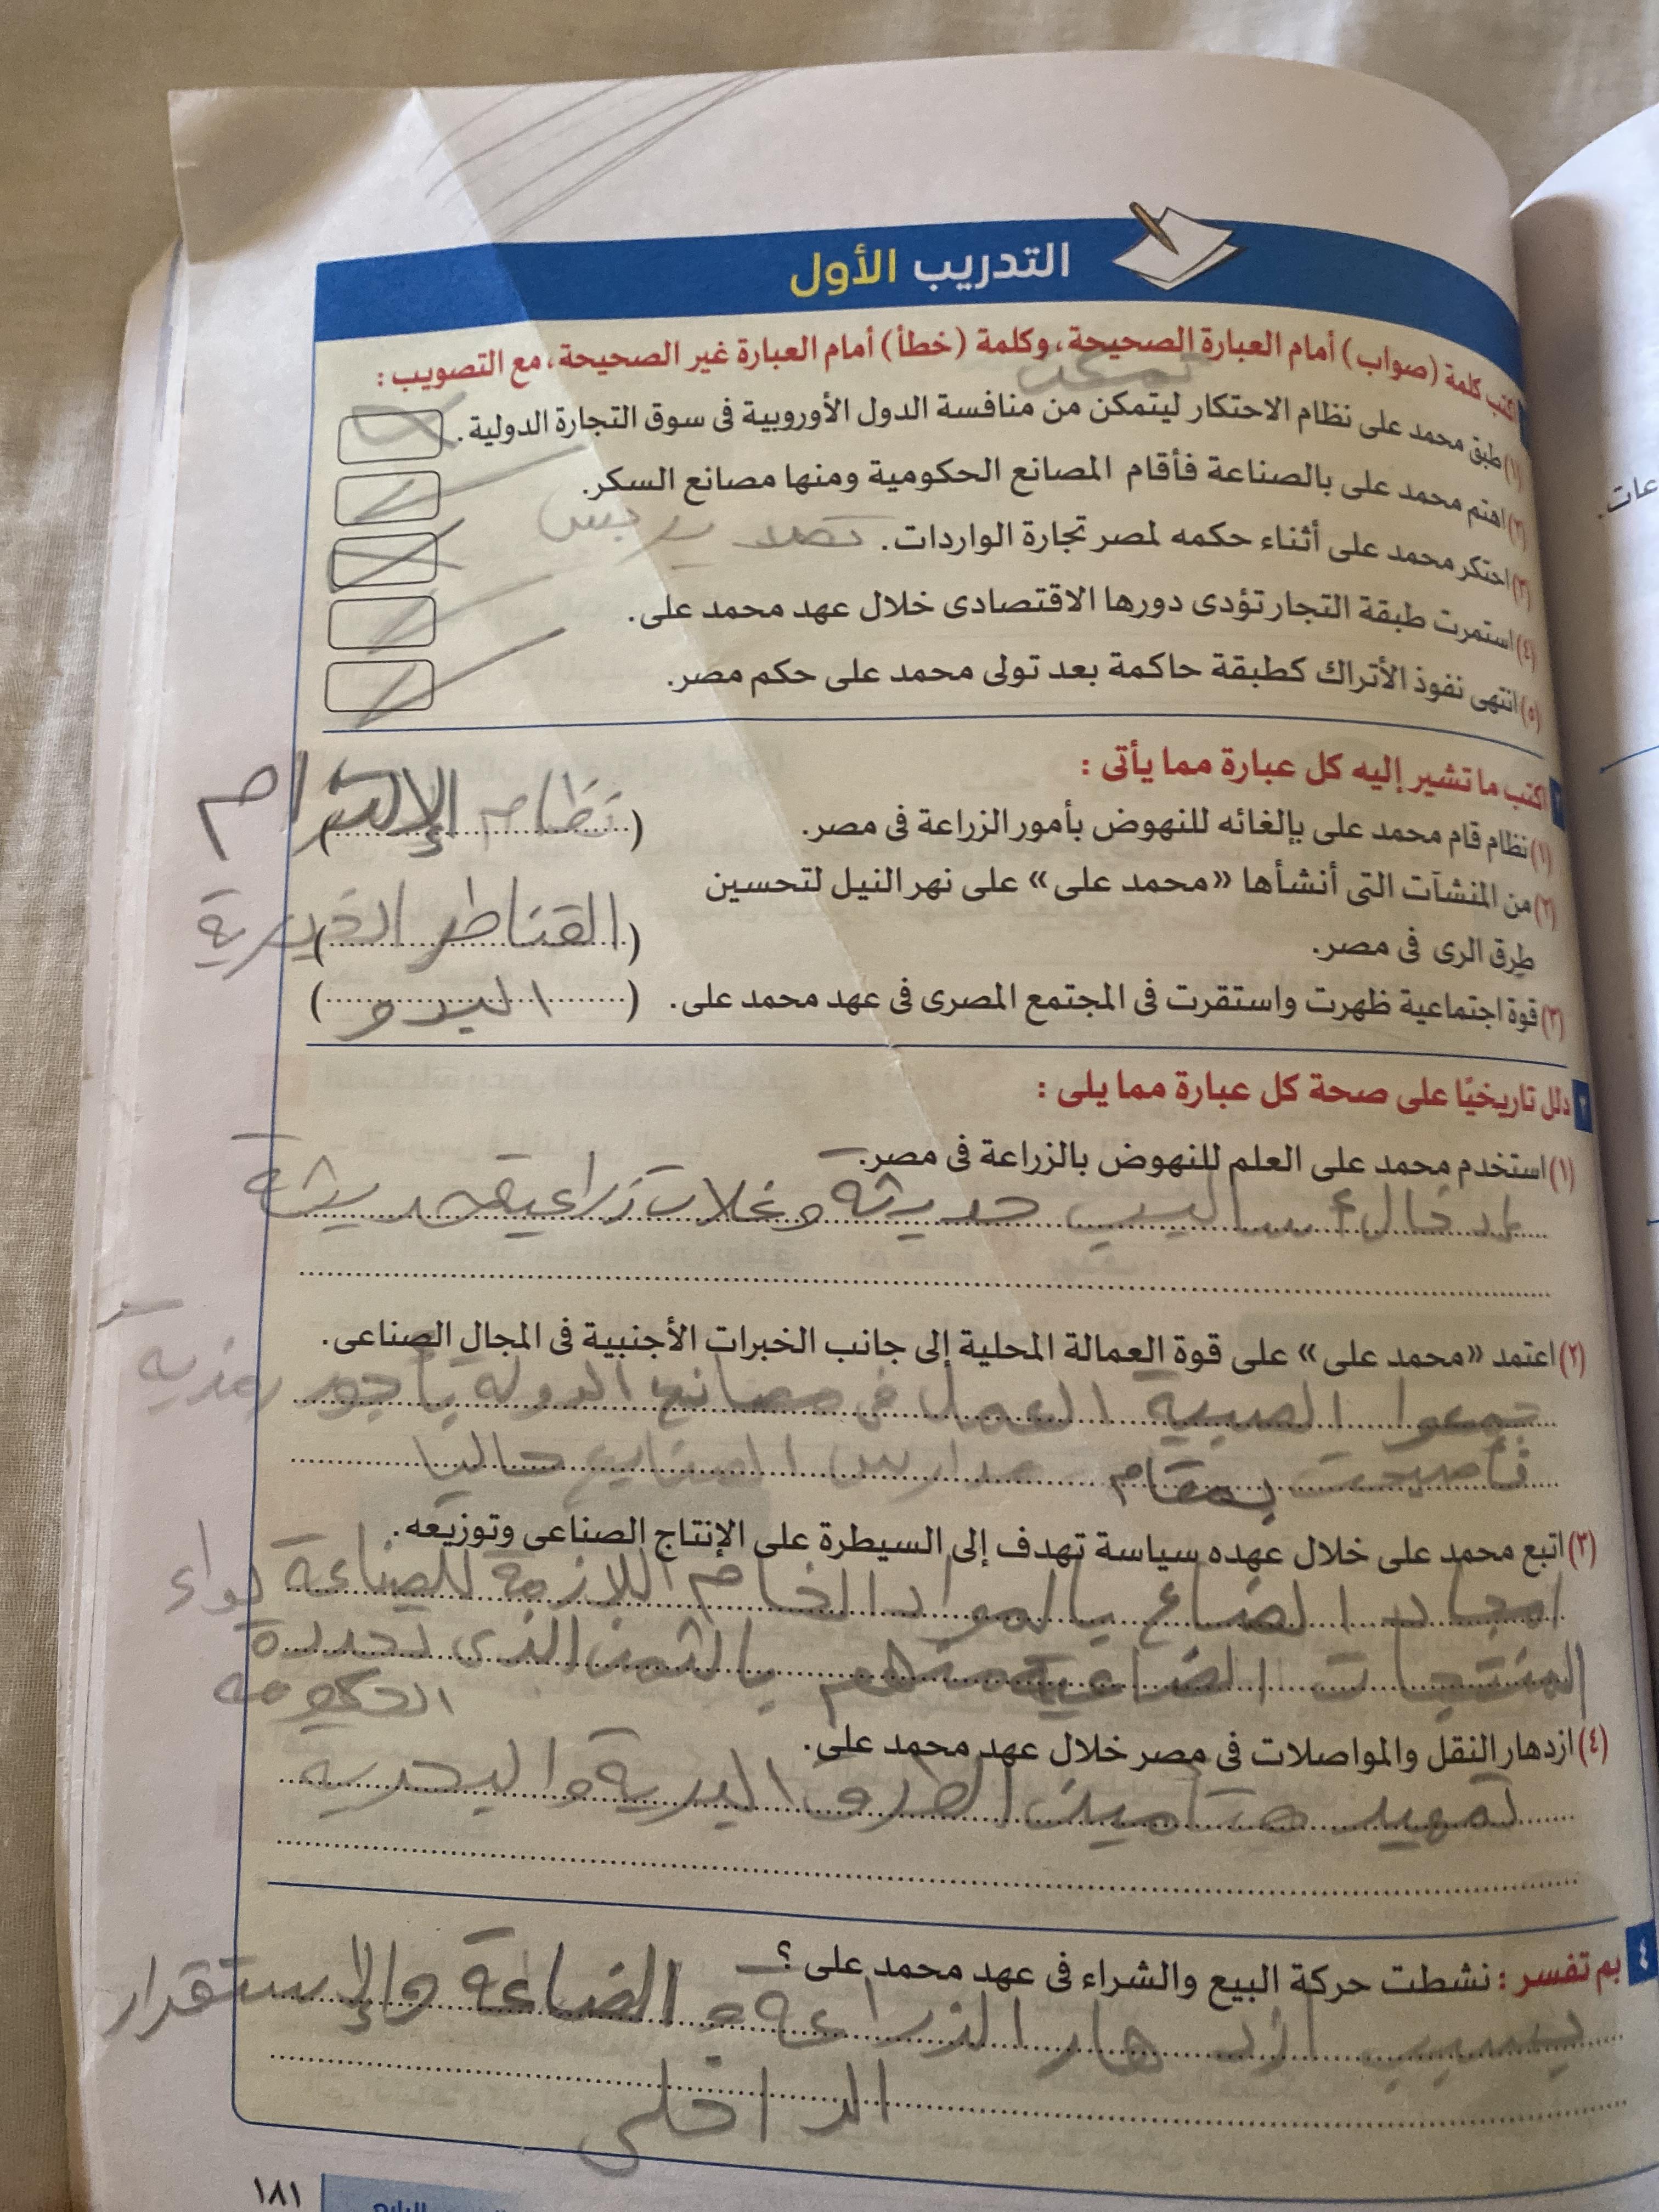 التدريب الأول
اكتب كلمة (صواب) أمام العبارة الصحيحة، وكلمة (خطأ) أمام العبارة غير الصحيحة، مع التصويب :
(١) طبق محمد على نظام الاحتكار ليتمكن من منافسة الدول الأوروبية فى سوق التجارة الدولية.
(٢) اهتم محمد على بالصناعة فأقام المصانع الحكومية ومنها مصانع السكر.
(٣) احتكر محمد على أثناء حكمه لمصر تجارة الواردات.
(٤) استمرت طبقة التجار تؤدى دورها الاقتصادى خلال عهد محمد على.
(٥) انتهى نفوذ الأتراك كطبقة حاكمة بعد تولى محمد على حكم مصر.
٢ اكتب ما تشير إليه كل عبارة مما يأتى :
(١) نظام قام محمد على بإلغائه للنهوض بأمور الزراعة فى مصر. (نظام الإلتزام)
(٢) من المنشآت التى أنشأها «محمد على» على نهر النيل لتحسين
طرق الرى فى مصر. (القناطر الخيرية)
(٣) قوة اجتماعية ظهرت واستقرت فى المجتمع المصرى فى عهد محمد على. (البدو)
٣ دلل تاريخيًا على صحة كل عبارة مما يلى :
(١) استخدم محمد على العلم للنهوض بالزراعة فى مصر.
إدخال أساليب حديثة وغلات زراعية حديثة
(٢) اعتمد «محمد على» على قوة العمالة المحلية إلى جانب الخبرات الأجنبية فى المجال الصناعى.
جمعوا الصبية العمل فى مصانع الدولة بأجور رمزية
فأصبحت بمقام مدارس الصنايع حاليا
(٣) اتبع محمد على خلال عهده سياسة تهدف إلى السيطرة على الإنتاج الصناعى وتوزيعه.
امداد الصناع بالمواد الخام اللازمة للصناعة
المنتجات الصناعية منهم بالثمن الذى تحدده
الحكومه
(٤) ازدهار النقل والمواصلات فى مصر خلال عهد محمد على.
تمهيد وتأمين الطرق البرية والبحرية
٤ بم تفسر : نشطت حركة البيع والشراء فى عهد محمد على ؟
بسبب ازدهار الزراعة و الصناعة والإستقرار
الداخلى
١٨١